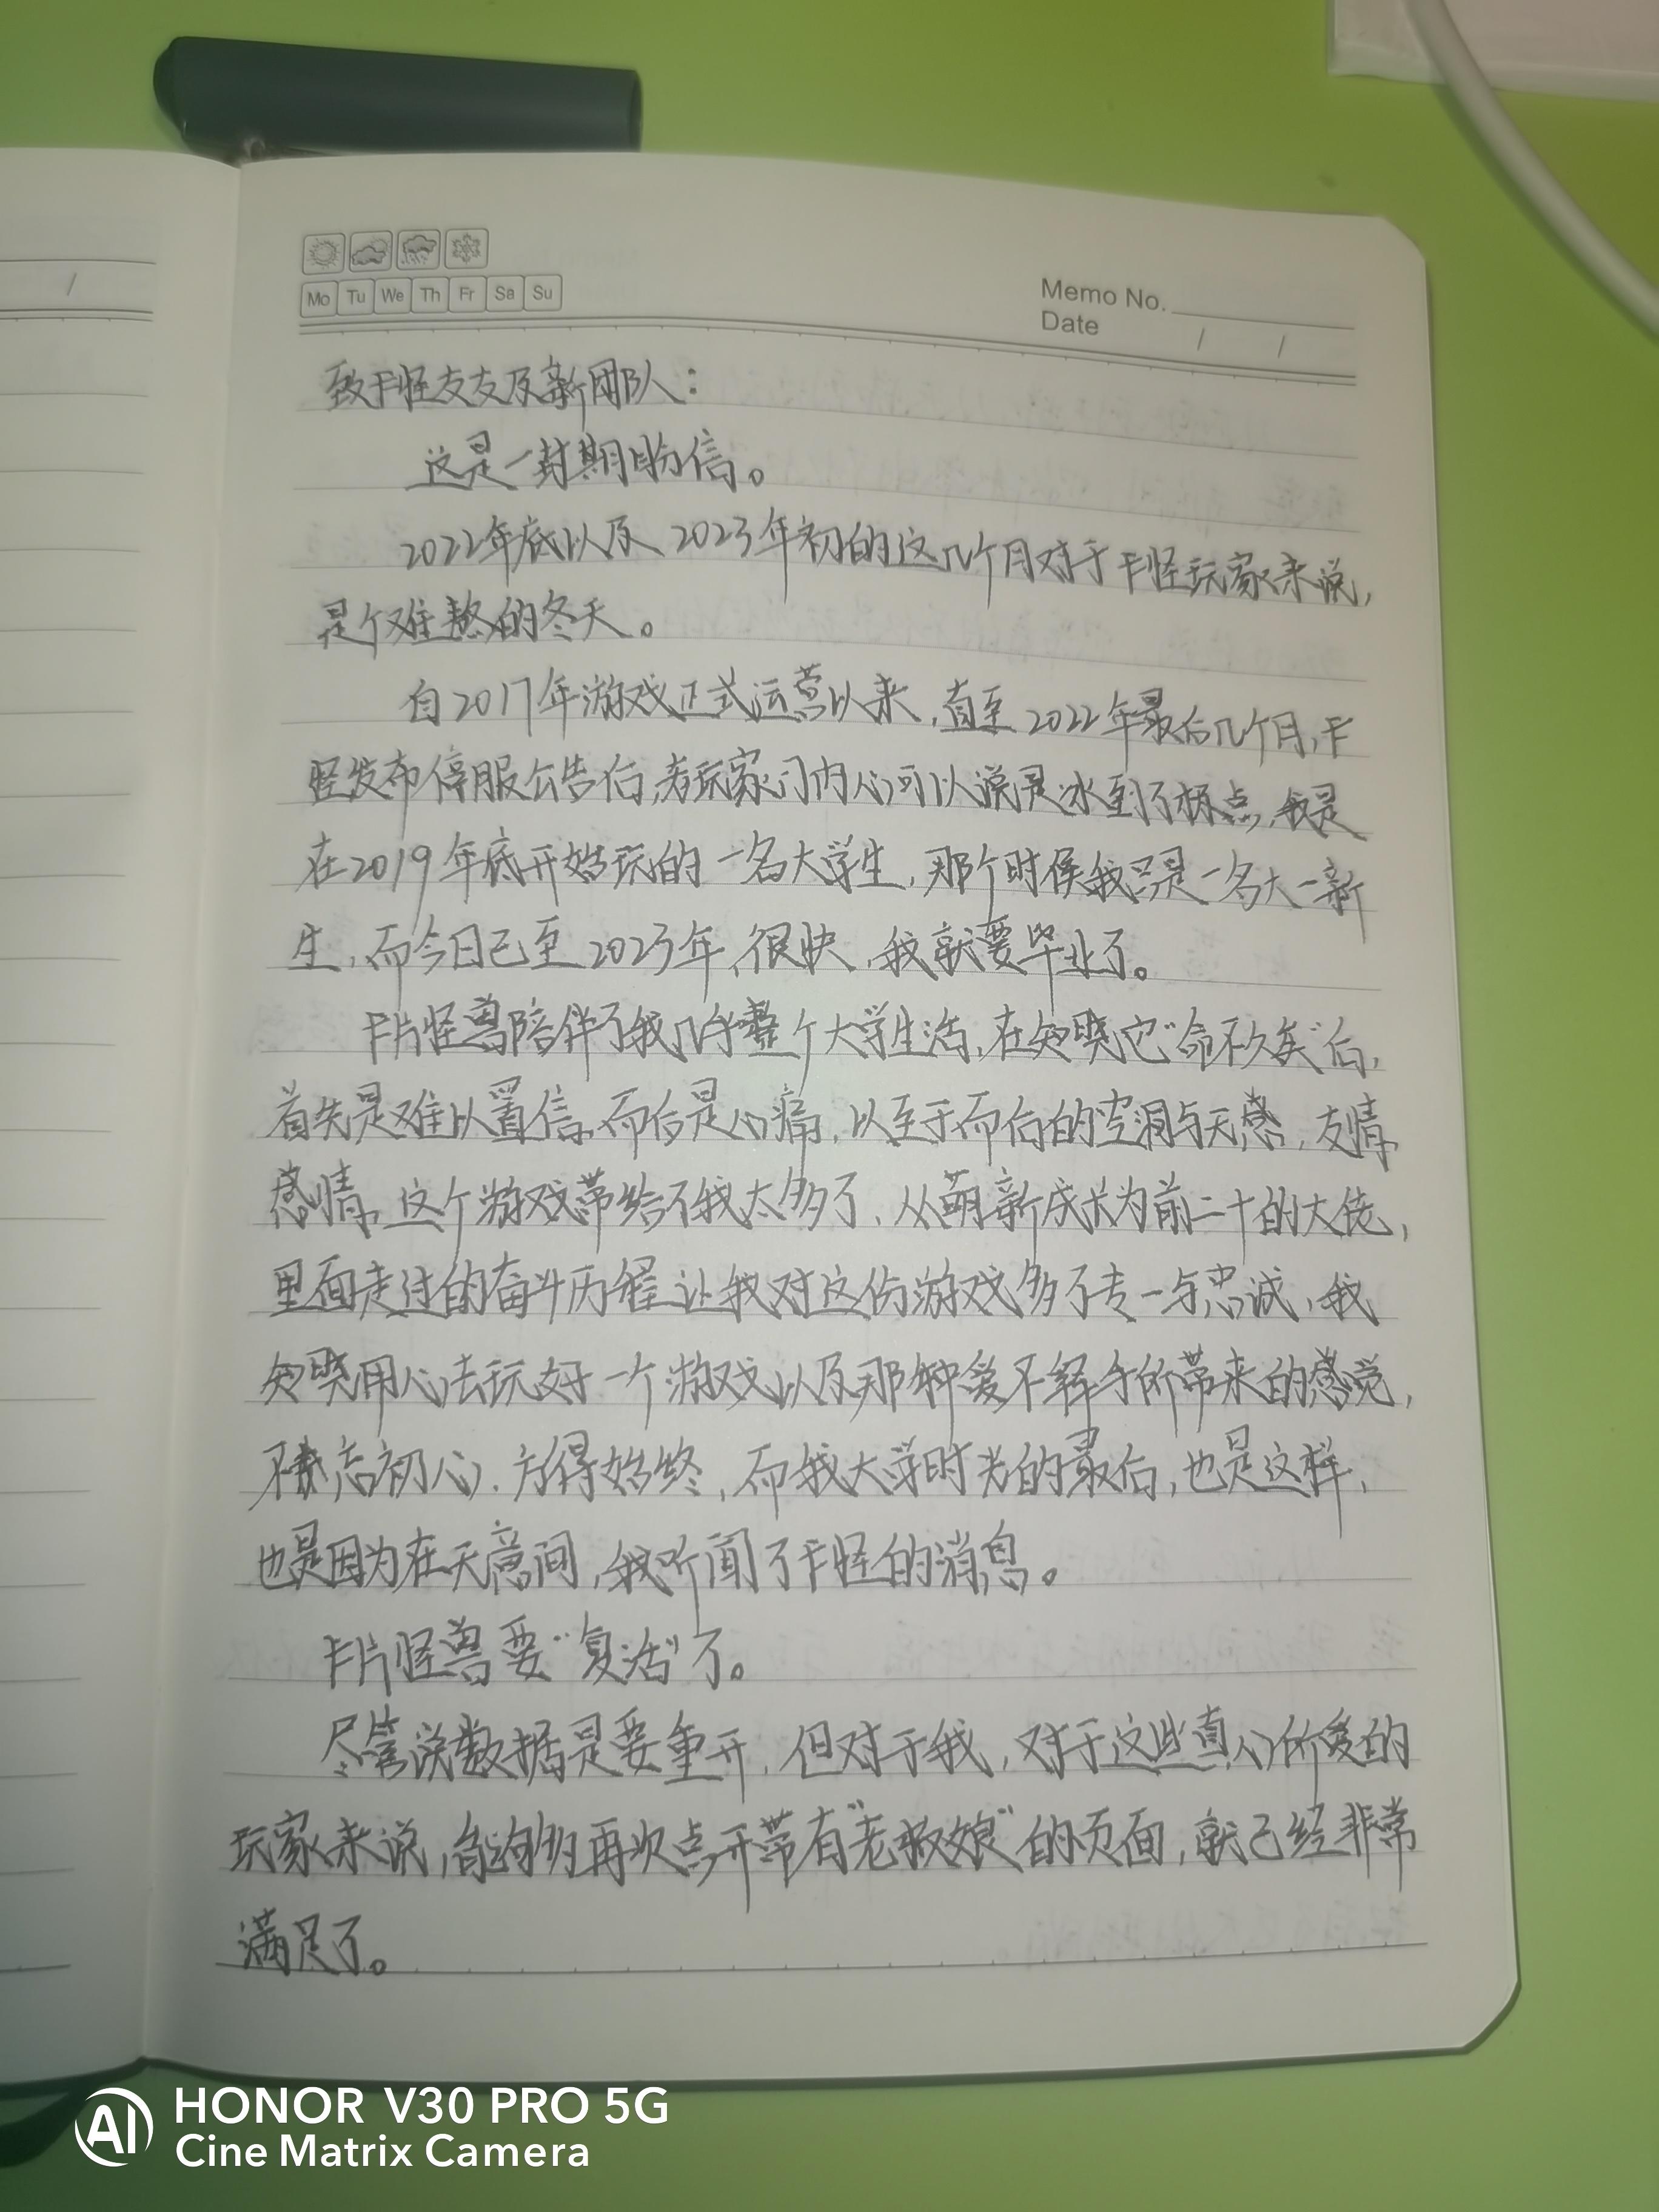 Mo Tu We Th Fr Sa Su
Memo No.
Date / /
/
致卡怪友友及新团队：
这是一封期盼信。
2022年底以及2023年初的这几个月对于卡怪玩家来说，
是个难熬的冬天。
自2017年游戏正式运营以来，直至2022年最后几个月，卡
怪发布停服公告后，老玩家们内心可以说是冰到了极点，我是
在2019年底开始玩的一名大学生，那个时候我只是一名大一新
生，而今日已至2023年，很快，我就要毕业了。
卡片怪兽陪伴了我几乎整个大学生活，在知晓它“命不久矣”后，
首先是难以置信，而后是心痛，以至于而后的空洞与无感，友情、
感情，这个游戏带给了我太多了，从萌新成长为前二十的大佬，
里面走过的奋斗历程让我对这份游戏多了专一与忠诚，我
知晓用心去玩好一个游戏以及那种爱不释手所带来的感觉，
不忘初心，方得始终，而我大学时光的最后，也是这样，
也是因为在无意间，我听闻了卡怪的消息。
卡片怪兽要“复活”了。
尽管说数据是要重开，但对于我，对于这些真心所爱的
玩家来说，能够再次点开带有“老板娘”的页面，就已经非常
满足了。
AI HONOR V30 PRO 5G
Cine Matrix Camera